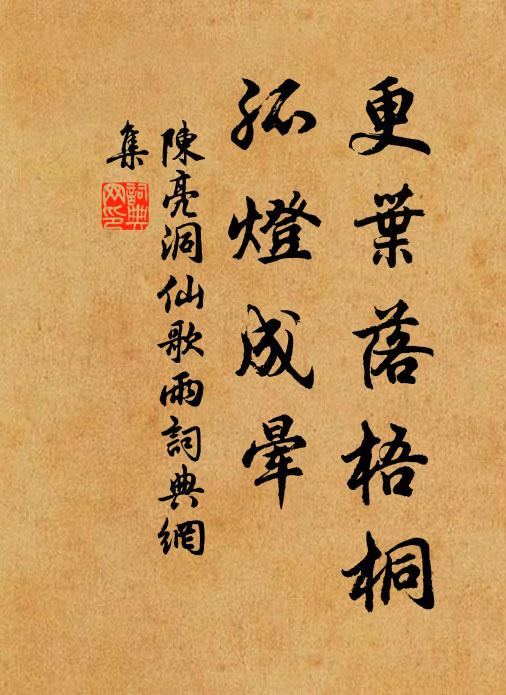 更葉落梧桐
孤燈成暈
陳亮洞仙歌雨詞典網
集
詞典
网印